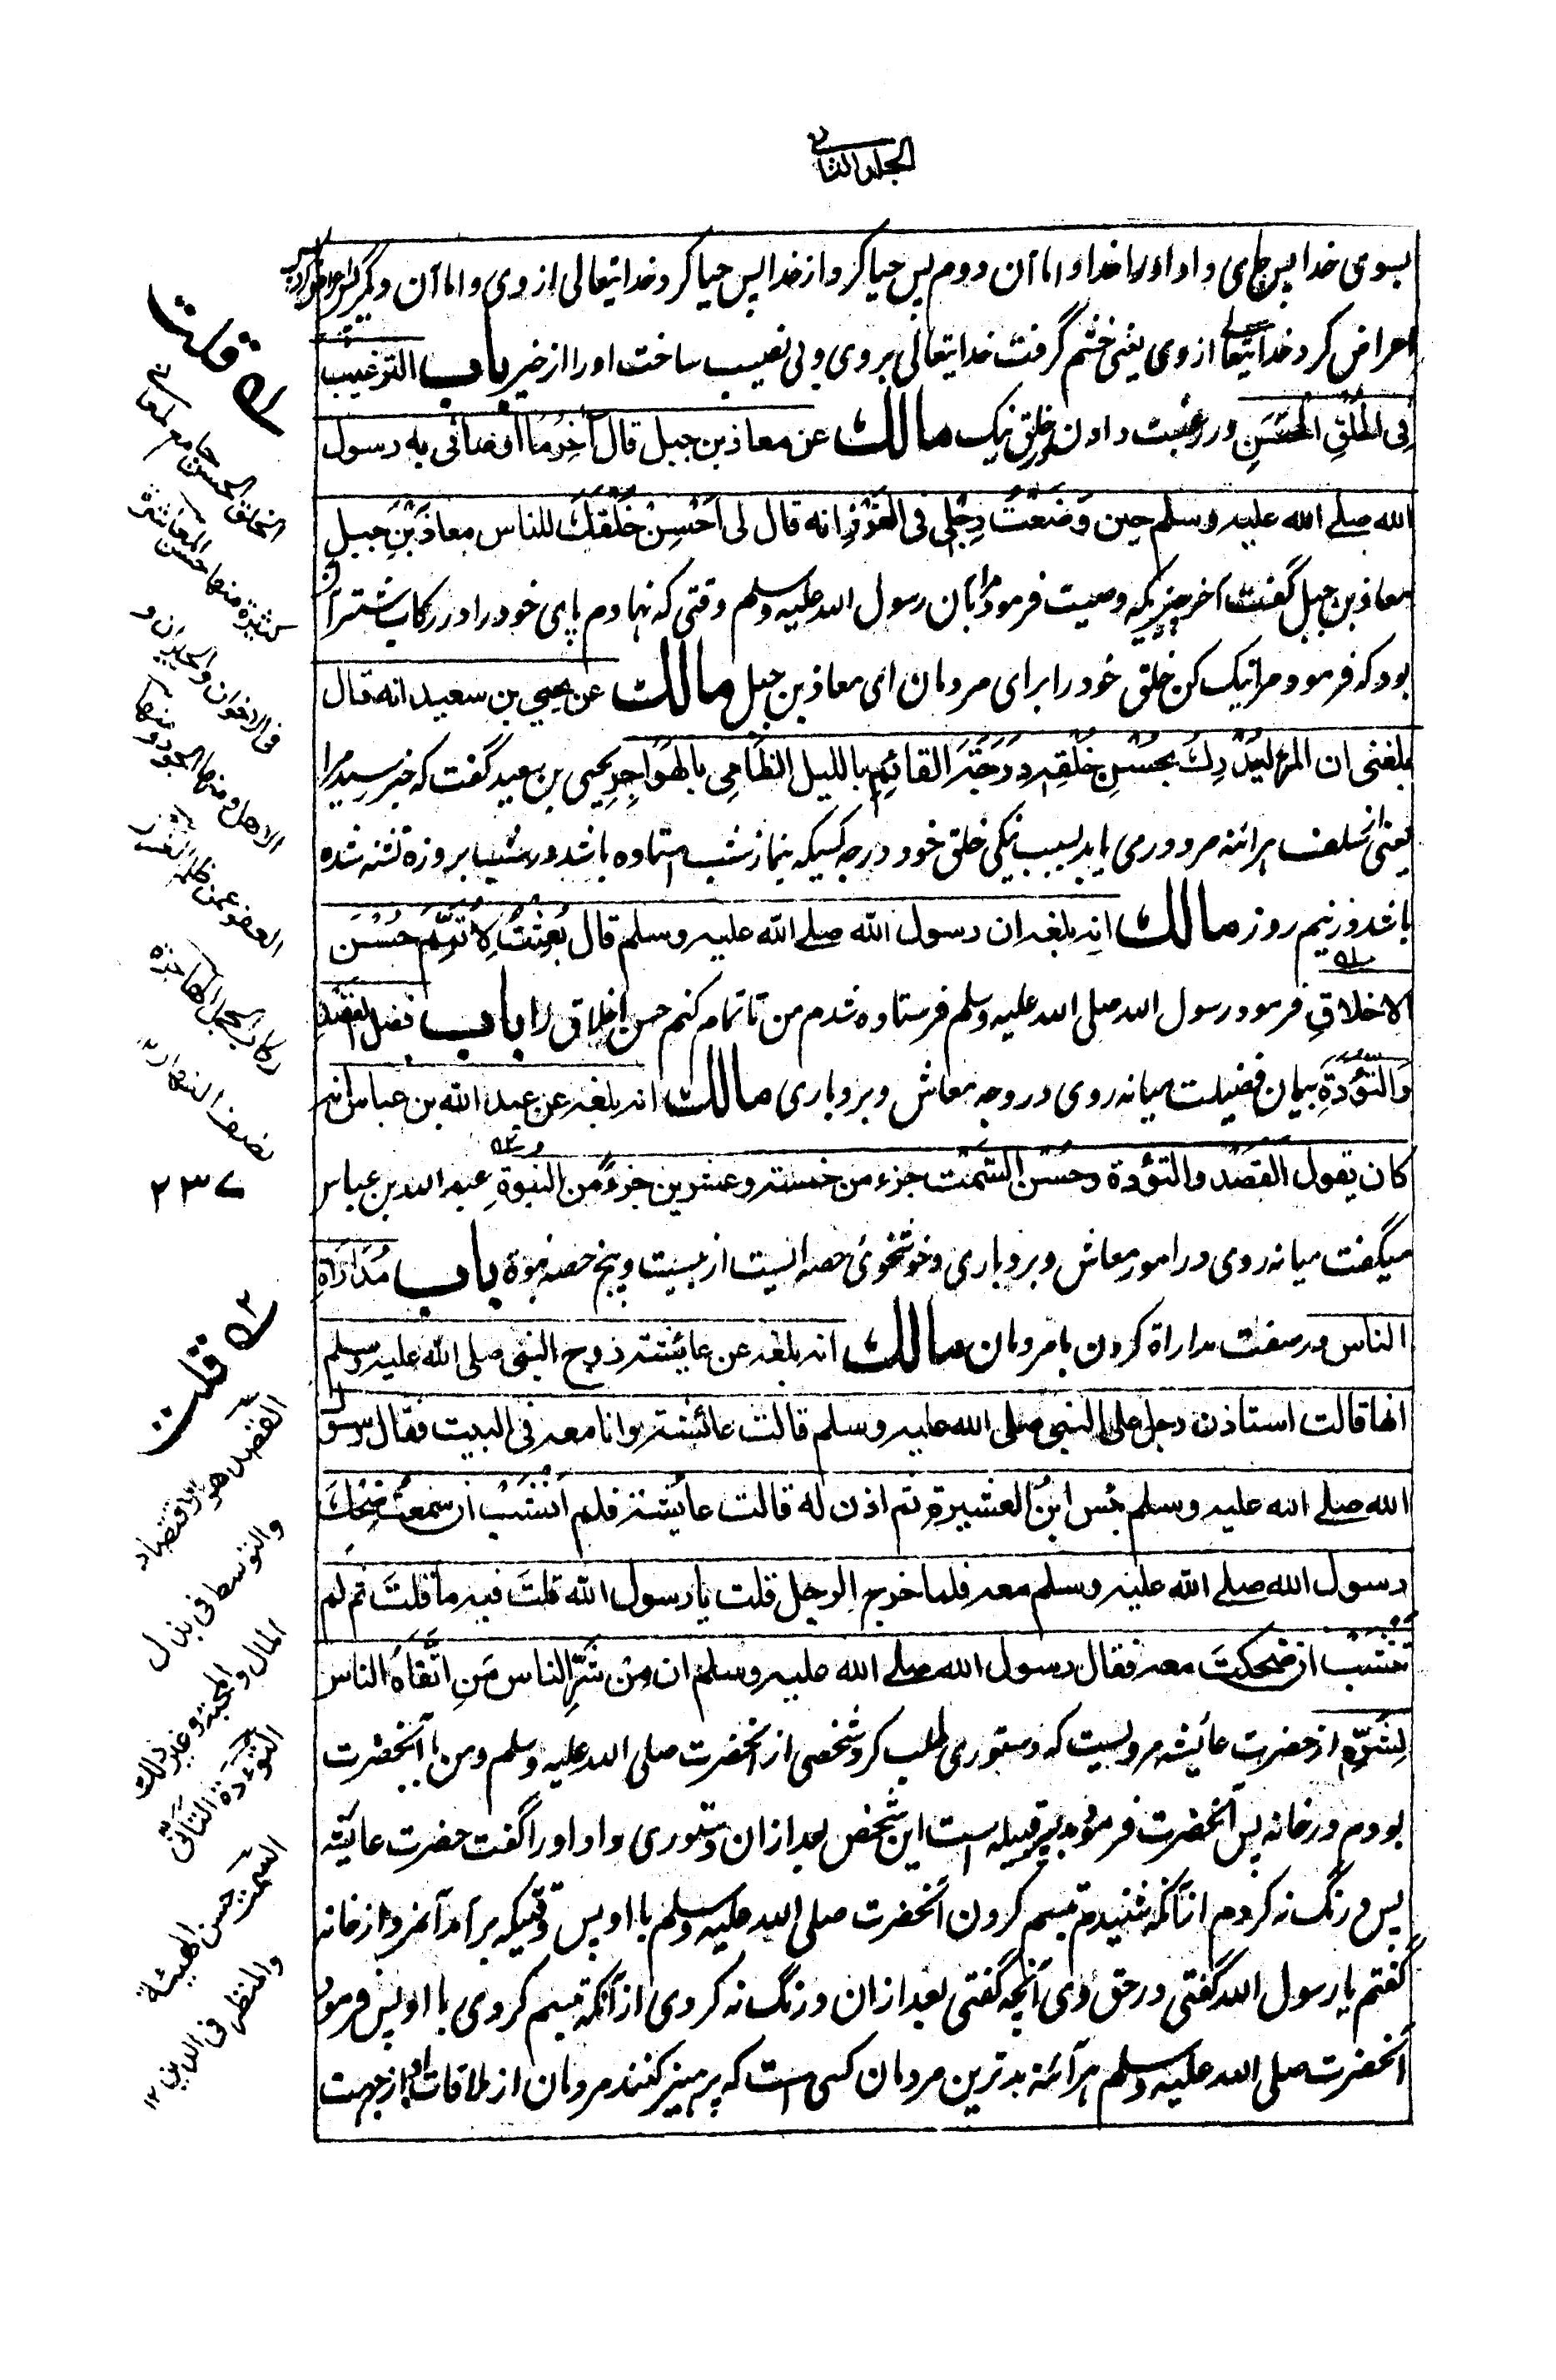 الجلد الثانی
بسوی خدا پس جای داد او را خدا و اما آن دوم پس حیا کرد از خدا پس حیا کرد خدایتعالی از وی و اما آن دیگر پس اعراض کرد پس
اعراض کرد خدایتعالی از وی یعنی خشم گرفت خدایتعالی بروی و بی نصیب ساخت او را از خیر باب الترغیب
فِی الخُلُقِ الحَسَنِ در رغبت دادن در خلق نیک مالك عن معاذ بن جبل قال آخِرُ ما اوصانی به رسول
الله صلے الله علیه وسلم حین وَضَعْتُ رِجْلِی فی الغَرْزِ انه قال لی اَحْسِنْ خُلُقَكَ للناس معاذَ بْنَ جبل
معاذ بن جبل گفت آخر چیزیکه وصیت فرمود مرا بآن رسول الله صلی الله علیه وسلم وقتی که نهادم پای خود را در رکاب شتر آن
بود که فرمود مرا نیک کن خلق خود را برای مردمان ای معاذ بن جبل مالك عن یحیی بن سعید انه قال
بلغنی ان المرء لیُدْرِكُ بحُسْنِ خُلُقِه دَرَجَةَ القائِمِ باللیل الظامِی بالهَوَاجِرِ یحیی بن سعید گفت که خبر رسید مرا
یعنی از سلف هر آئنه مرد دری یابد بسبب نیکی خلق خود درجه کسیکه بنماز شب استاده باشد در شب بروزه تشنه شده
باشد در نیم روز مالك انه بلغه ان رسول الله صلے الله علیه وسلم قال بُعِثْتُ لِاُتَمِّمَ حُسْنَ
الاخلاقِ فرمود رسول الله صلی الله علیه وسلم فرستاده شدم من تا تمامه کنم حسن اخلاق را باب فضل القصْدِ
وَالتُّؤَدَةِ بیان فضیلت میانه روی در وجه معاش و بردباری مالك انه بلغه عن عبد الله بن عباس انه
کان یقول القَصْدُ والتؤدة وحُسْنُ السَّمْتِ جزء من خمسة وعشرین جزءً من النبوةِ عبد الله بن عباس
میگفت میانه روی در امور معاش و بردباری و خوشخوئی حصه ایست از بیست و پنج حصه نبوة باب مُدَارَاةِ
الناس در صفت مداراة کردن با مردمان مالك انه بلغه عن عائشة زوج النبی صلی الله علیه وسلم
انها قالت استاذن رجل علی النبی صلی الله علیه وسلم قالت عائشة وانا معه فی البیت فقال رسول
الله صلے الله علیه وسلم بئس ابنُ العشیرة ثم اذن له قالت عائشة فلم اَنْشَبْ ان سَمِعْتُ ضِحْكَ
رسول الله صلے الله علیه وسلم معه فلما خرج الرجل قلت یا رسول الله قلتَ فیه ما قلتَ ثم لم
تَنْشَبْ ان ضحکتَ معه فقال رسول الله صلے الله علیه وسلم ان مِنْ شَرِّ الناس مَنِ اتَّقَاهُ الناس
لِشَرِّهِ از حضرت عائشه مرویست که دستوری طلب کرد شخصی از آنحضرت صلی الله علیه وسلم و من با آنحضرت
بودم در خانه پس آنحضرت فرمود بد پسر قبیله است این شخص بعد از ان دستوری داد او را گفت حضرت عایشه
پس درنگ نه کردم از آنکه شنیدم تبسم کردن آنحضرت صلی الله علیه وسلم با او پس وقتیکه بر آمد آنمرد از خانه
گفتم یا رسول الله گفتی در حق وی آنچه گفتی بعد از ان درنگ نه کردی از آنکه تبسم کردی با او پس فرمود
آنحضرت صلی الله علیه وسلم هر آئنه بدترین مردمان کسی است که پرهیز کنند مردمان از ملاقات او از جهت
قلت
الخلق الحسن جامع لمعان
کثیرة منها حسن المعاشرة
فی الاخوان والجیران و
الاهل ومنها الجود و منها
العفو عمن ظلمه الغرز
رکاب الجمل الهاجرة
نصف النهار ۱۲
۲۳۷
قلت
القصد هو الاقتصاد
والتوسط فی بذل
المال والمحبة وغیر ذلك
التؤدة التأنی
السمت حسن الهیئة
والمنظر فی الدین ۱۲